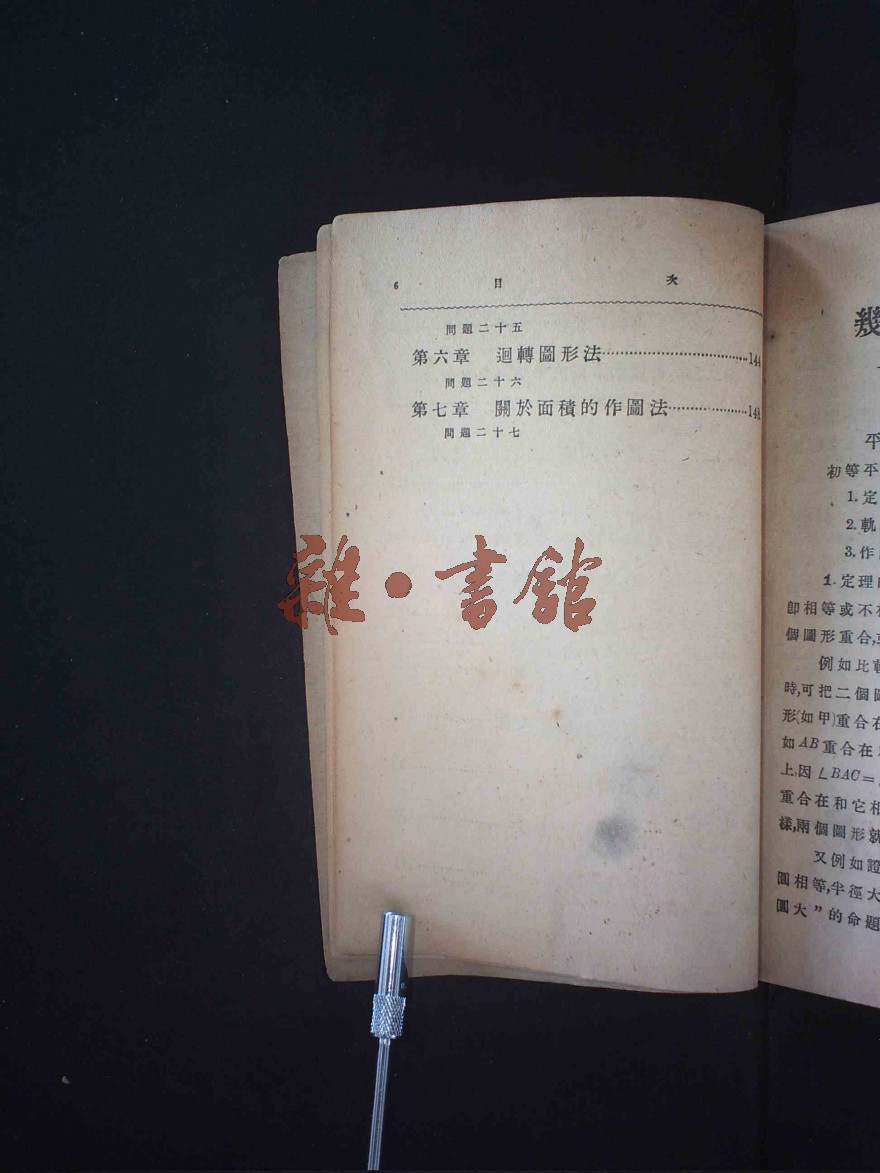 6 目 次
問題二十五
第六章 迴轉圖形法……………………144
問題二十六
第七章 關於面積的作圖法……………148
問題二十七
雜·書館
幾
平
初等平
1. 定
2. 軌
3. 作
1. 定理
卽相等或不
個圖形重合,
例如比較
時,可把二個
形(如甲)重合在
如AB重合在
上,因∠BAC=
重合在和它相
樣,兩個圖形就
又例如證
圓相等,半徑大
圓大”的命題